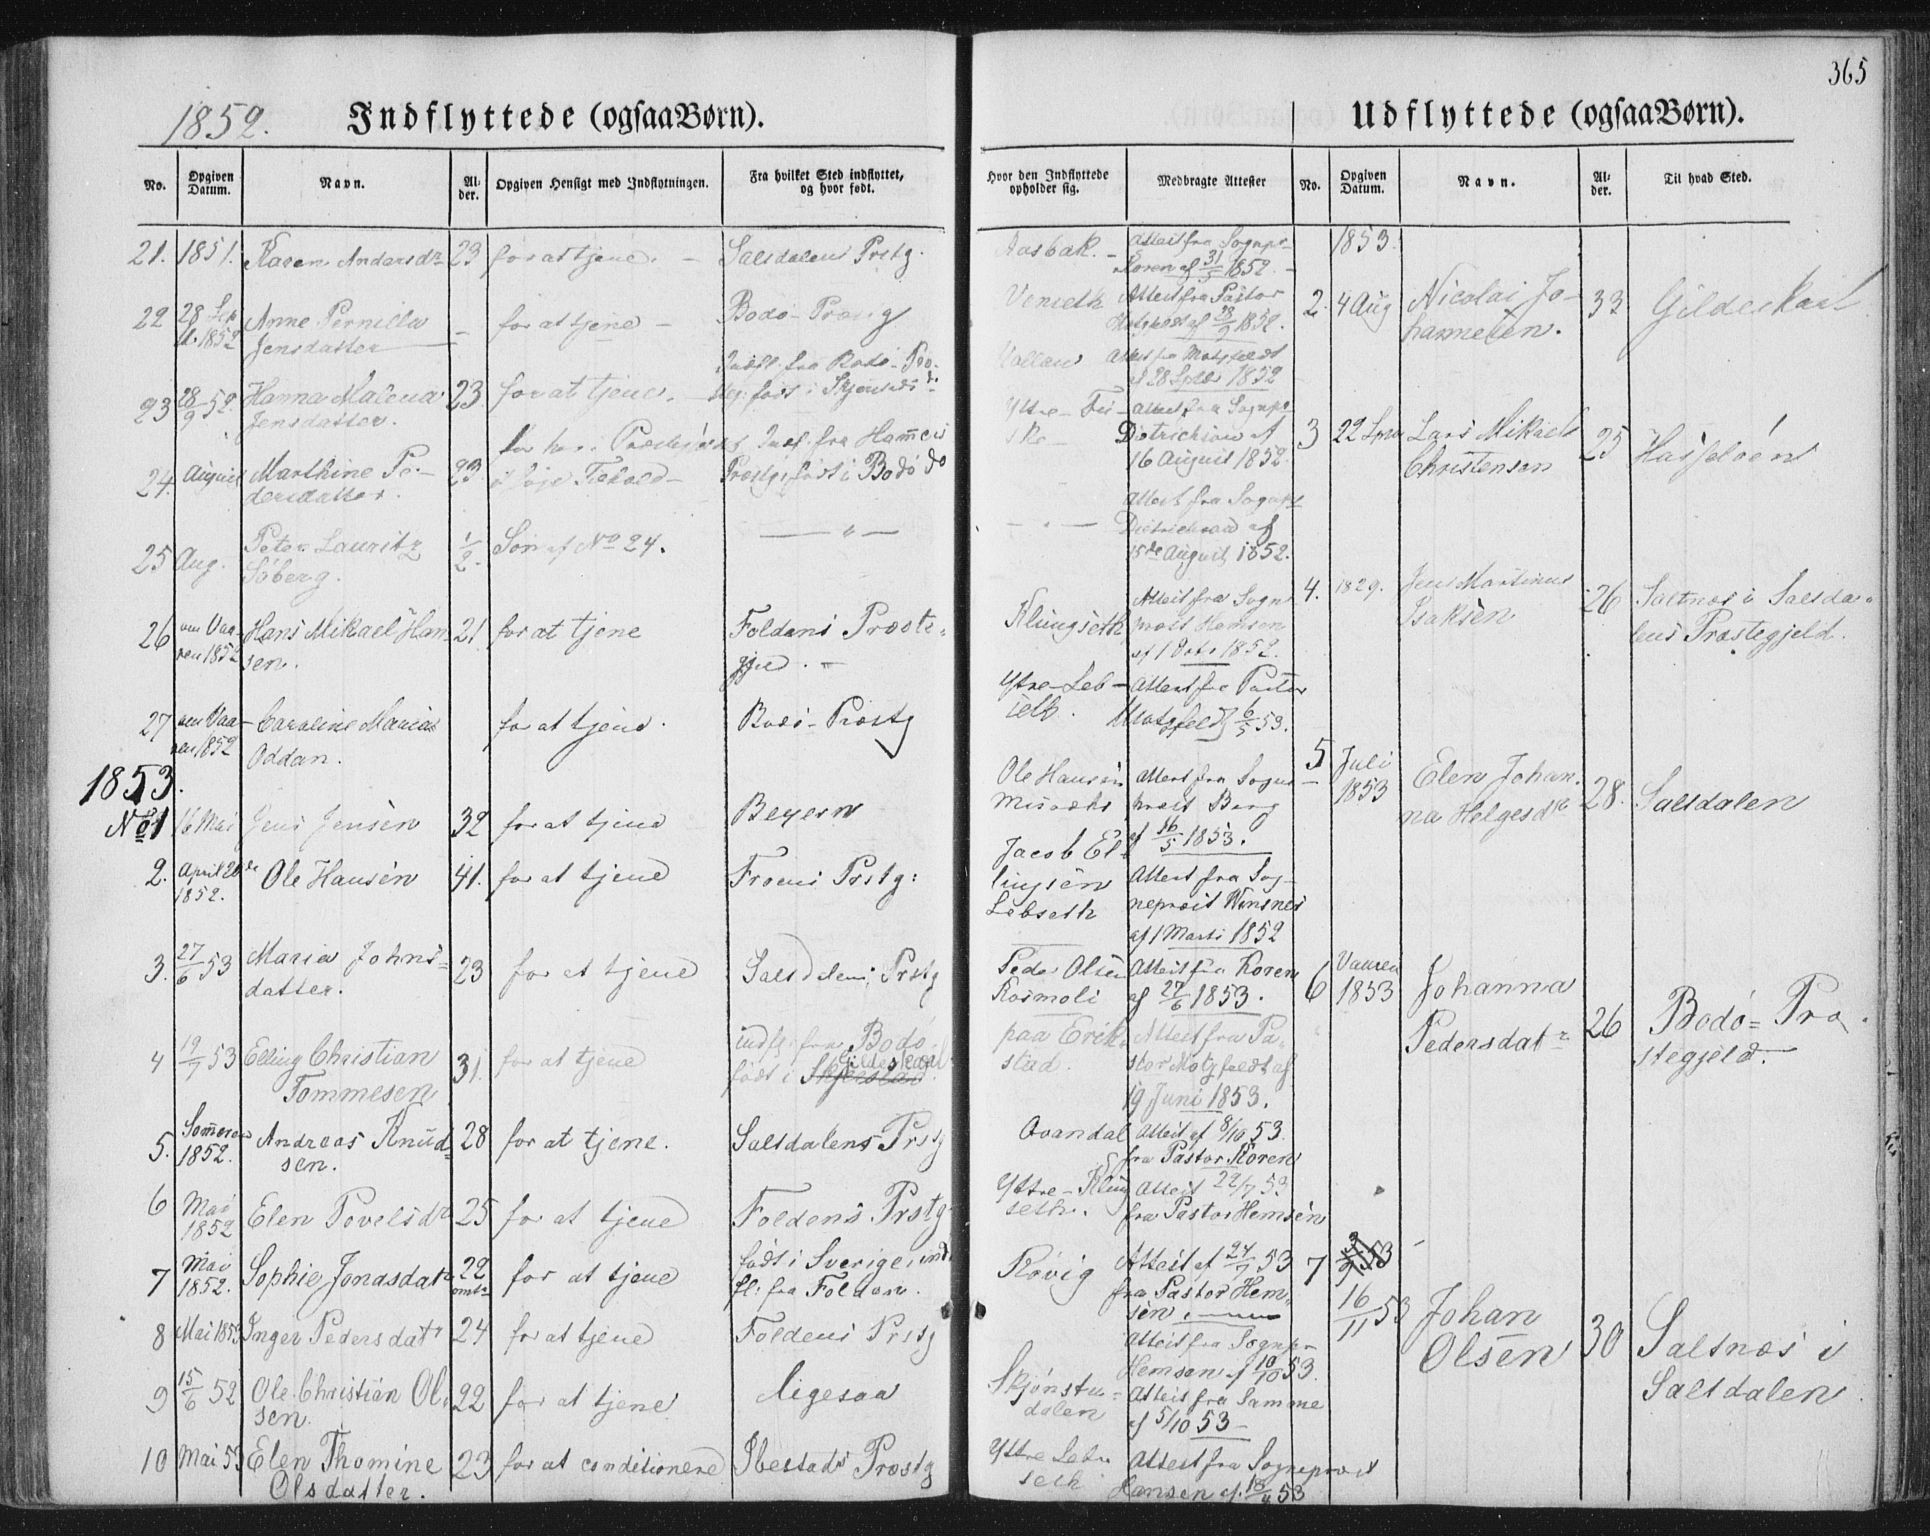 365
1852.
Indflyttede (ogsaa Børn).
No.
Opgiven Datum.
Navn.
Al-der.
Opgiven Hensigt med Indflytningen.
Fra hvilket Sted indflyttet, og hvor født.
21. 1851. Karen Andersdr 23 for at tjene. - Saltdalens Prstg.
22 28 1852 Anne Pernilla - for at tjene - Bodø-Præstg
Jensdatter
Indfl. fra Bodø-Præ-
23 28/9 52. Hanna Malena 23 for at tjene. - født i Skjerstad
Jensdatter.
24. August Marthine Pe- 23 Indf. fra Hamerø
dersdatter. Præstg. født i Bodø do
25 Aug. Peter Lauritz 1/2 Søn af No 24. - " -
Søberg.
26 om Vaa- Hans Mikael Han 21. for at tjene Foldens Præste-
ren 1852 sen. gjeld. -
27 om Vaa- Caroline Maria for at tjene. Bodø-Præstg
ren 1852 Oddan.
1853.
No 1 16 Mai Jens Jensen 32 for at tjene Beyern
2. April 20de Ole Hansen 41. for at tjene Froens Prstg:
1852.
3. 27/6 53 Maria Johns- 23 for at tjene Saltdalens Prstg
datter.
4 19/7 53 Elling Christian 31. for at tjene indfl. fra Bodø
Tommesen født i Skjerstad Gildeskaal
5. Sommeren Andreas Knud- 28 for at tjene. Saltdalens Prstg
1852. sen.
6 Mai Elen Povelsdr 25 for at tjene Foldens Prstg.
1852
7 Mai Sophie Jonasdatr 22 for at tjene født i Sverige, ind-
1852. omtr fl. fra Folden.
8 Mai 1853 Inger Pedersdatr 24 for at tjene Foldens Prstg
9 15/6 52 Ole Christian Ol- 22 for at tjene ligesaa
sen.
10 Mai 53 Elen Thomine 23 for at conditionere Ibestads Præstg
Olsdatter.
Udflyttede (ogsaa Børn).
Hvor den Indflyttede opholder sig.
Medbragte Attester
No.
Opgiven Datum.
Navn.
Al-der.
Til hvad Sted.
Aasbak. - Attest fra Sognepr 1853.
Koren af 31/5 1852. -
Venseth Attest fra Pastor 2. 4 Aug Nicolai Jo- 33. Gildeskaal
Motzfeldt af 1852. hannesen.
Vallan Attest fra Motzfeldt
af 28 Septbr 1852
Ytre-Fei- Attest fra Sognepr
ske - Dietrichson af 3 22 Lars Mikael 25 Hasseløen
16 August 1852. Christensen
Attest fra Sognepr
- " - Dietrichson af
15de August 1852.
Klungseth Attest fra Sogn 4. 1829. Jens Martinus 26 Saltnæs i Saltda-
Hemsen Isaksen lens Præstegjeld.
af 1 1852.
Ytre-Leb- Attest fra Pastor
seth. Motzfeldt 6/5 53.
Ole Hansen Attest fra Sogne- 5 Juli Elen Johan- 28. Saltdalen
Misvær præst Berg 1853 na Helgesdtr
af 16/5 1853.
Jacob El-
lingsen Attest fra Sog-
Lebseth nepræst Winsnes
af 1 Marts 1852
Peder Olsen Attest fra Koren 6 Vaaren Johanna
Kosmoli af 27/6 1853. 1853 Pedersdatr 26 Bodø-Præ-
paa Erik- Attest fra Pa- stegjeld.
stad. stor Motzfeldt af
19 Juni 1853.
Qvandal Attest af 8/10 53.
fra Pastor Koren
Ytre-Klung Attest 22/7 53
seth. fra Pastor Hemsen
Røvig Attest af 27/7 53 7 3/9 53
fra Pastor Hem- 16/11 53 Johan 30 Saltnæs i
sen. Olsen Saltdalen
Attest fra Sognepr
Hemsen af 10/10 53.
Skjønstu- Attest fra Samme
dalen af 5/10 53 -
Ytre Leb- Attest fra Sognepræst
seth Hansen af. 18/4 53